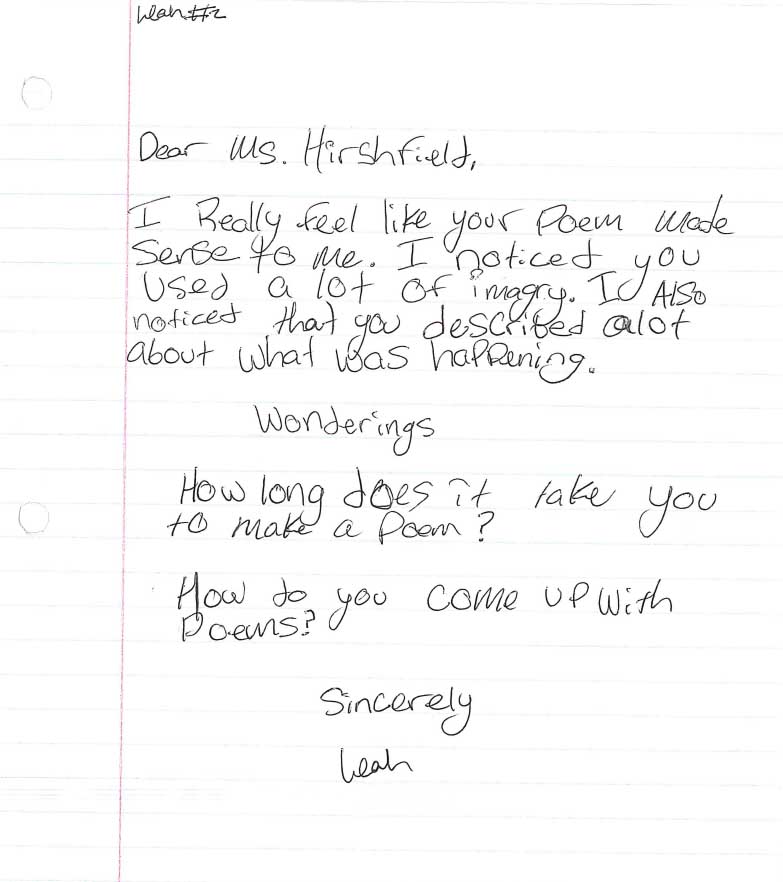 Leah #2
Dear Ms. Hirshfield,
I Really feel like your Poem made
Sense to me. I noticed you
Used a lot of imagry. I Also
noticed that you described alot
about what was happening.
Wonderings
How long does it take you
to make a Poem?
How do you come up with
Poems?
Sincerely
Leah